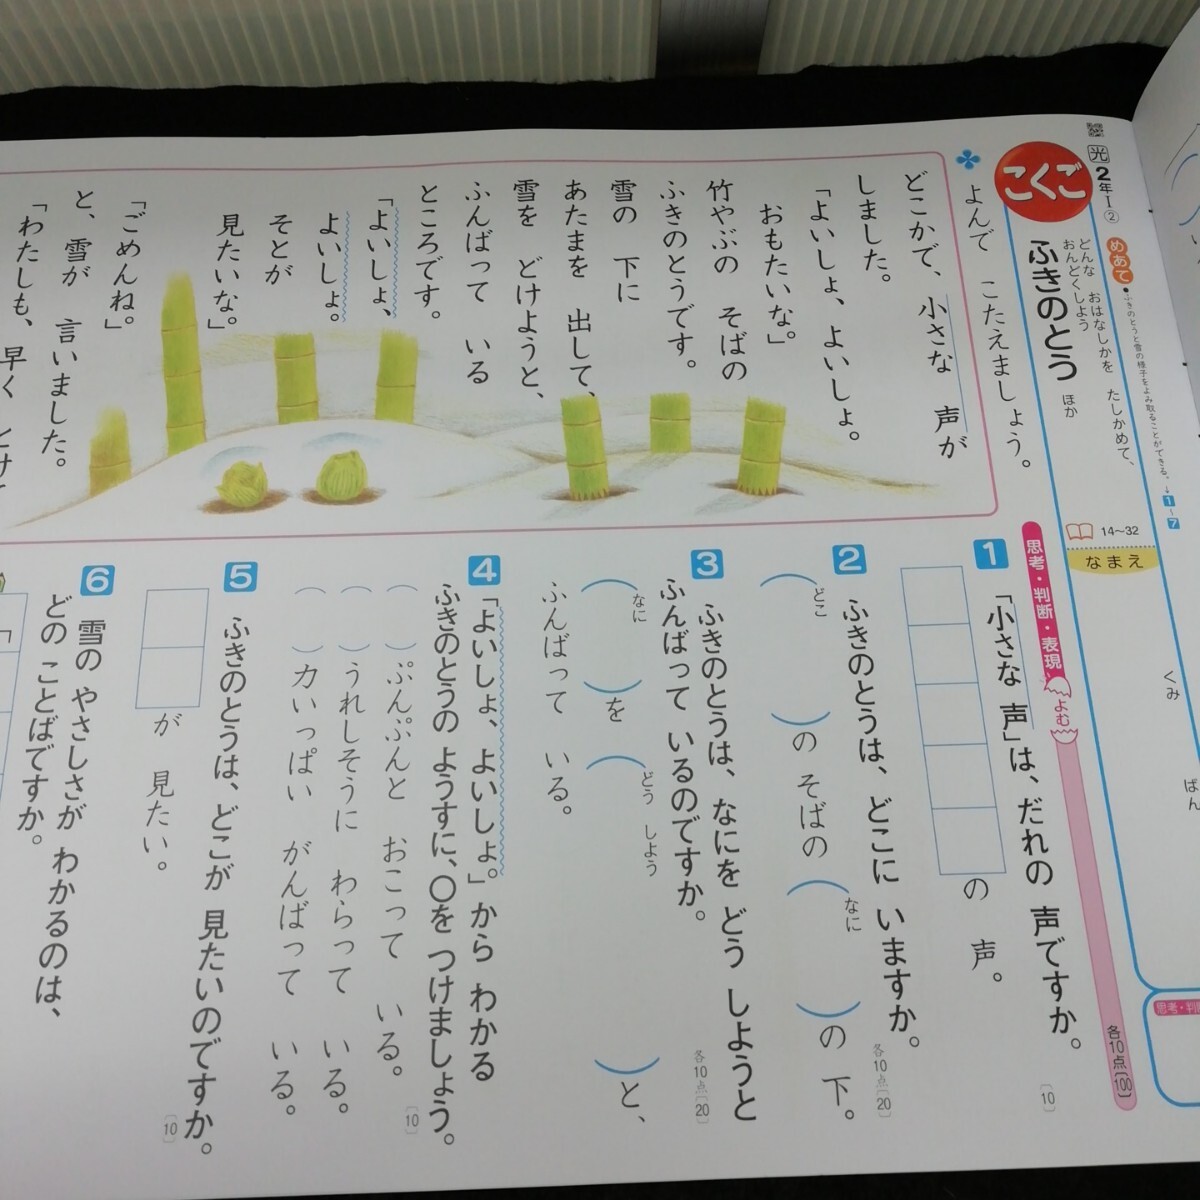 光
2年Ⅰ②
こくご
めあて
・ふきのとうと雪の様子をよみ取ることができる。→1～7
どんな おはなしかを たしかめて、
おんどくしよう
ふきのとう ほか
14～32
なまえ
くみ
ばん
よんで こたえましょう。
どこかで、小さな 声が
しました。
「よいしょ、よいしょ。
おもたいな。」
竹やぶの そばの
ふきのとうです。
雪の 下に
あたまを 出して、
雪を どけようと、
ふんばって いる
ところです。
「よいしょ、
よいしょ。
そとが
見たいな。」
「ごめんね。」
と、雪が 言いました。
「わたしも、早く とけて
思考・判断・表現
よむ
各10点〔100〕
思考・判断
1
「小さな 声」は、だれの 声ですか。
の 声。
〔10〕
2
ふきのとうは、どこに いますか。
各10点〔20〕
どこ
（ ）の そばの（ ）の 下。
なに
3
ふきのとうは、なにを どう しようと
ふんばって いるのですか。
各10点〔20〕
なに
（ ）を（ ）と、
どう しよう
ふんばって いる。
4
「よいしょ、よいしょ。」から わかる
ふきのとうの ようすに、○を つけましょう。
〔10〕
（ ）ぷんぷんと おこって いる。
（ ）うれしそうに わらって いる。
（ ）力いっぱい がんばって いる。
5
ふきのとうは、どこが 見たいのですか。
〔10〕
が 見たい。
6
雪の やさしさが わかるのは、
どの ことばですか。
「